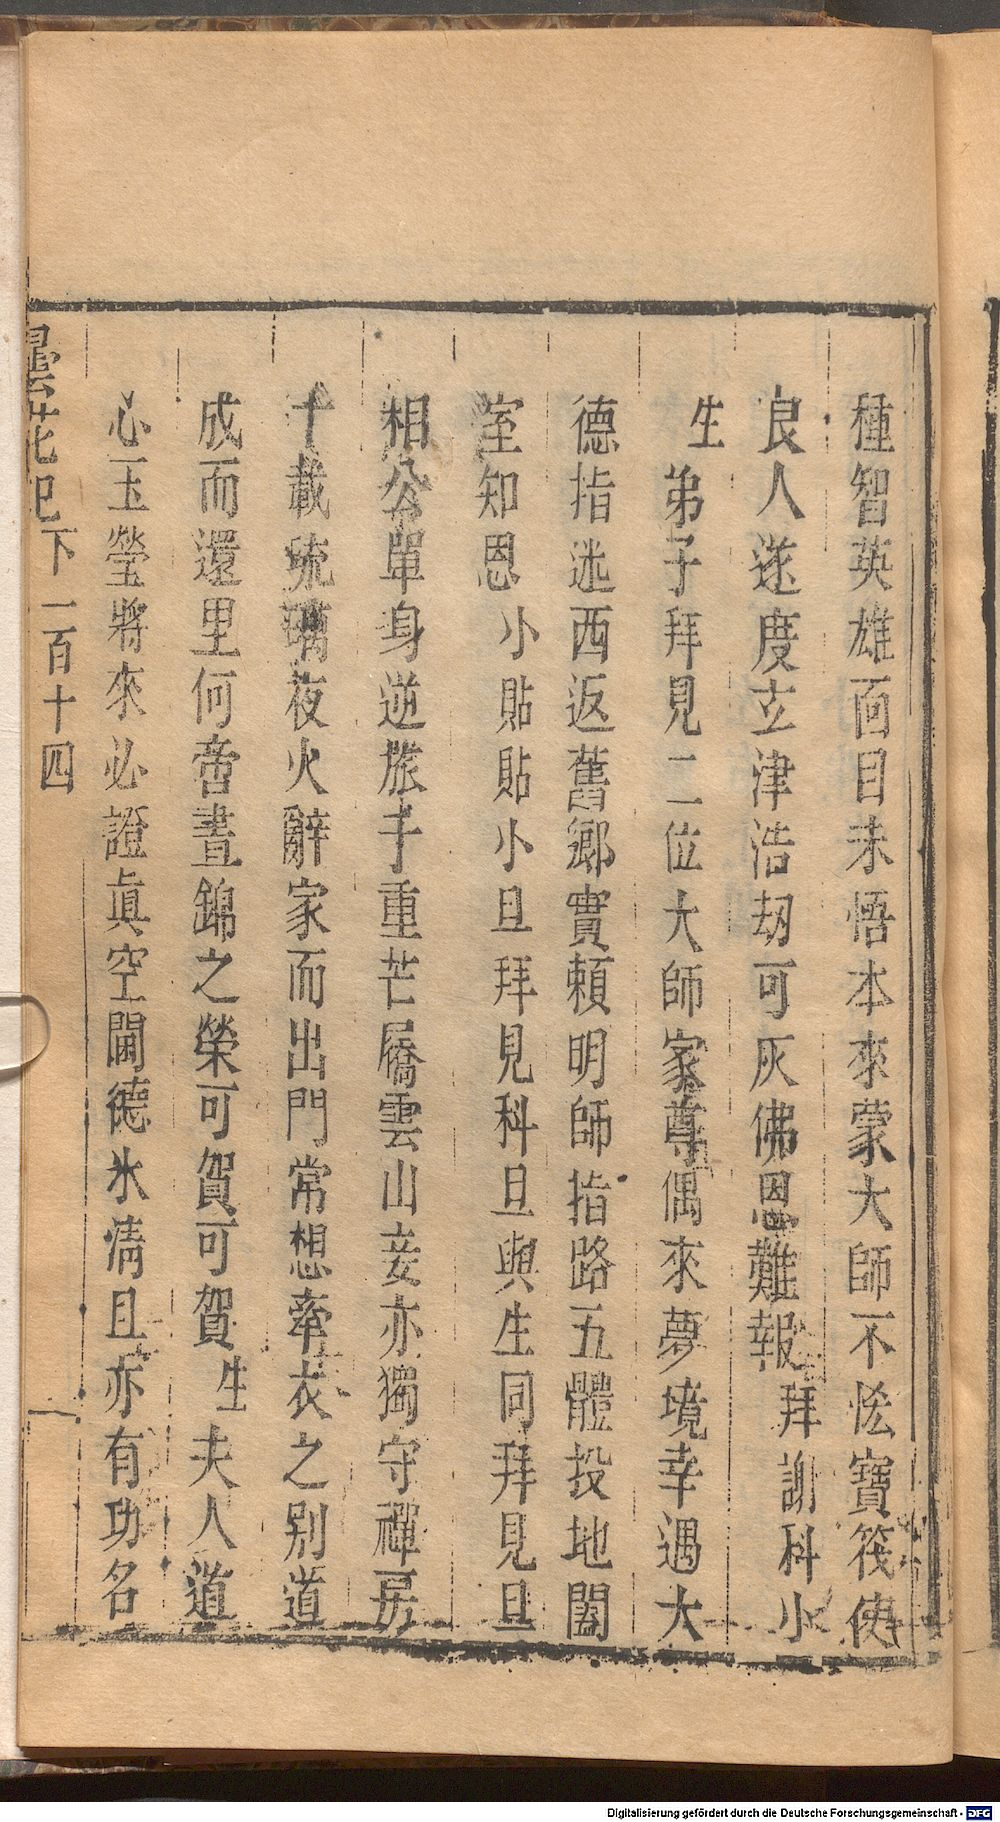 種智英雄面目未悟本來蒙大師不恡寶筏使
良人遂度玄津浩刼可灰佛恩難報 拜謝科小
生 弟子拜見二位大師家尊偶來夢境幸遇大
德指迷西返舊鄉實頼明師指路五體投地闔
室知恩 小貼貼小旦拜見科旦與生同拜見旦
相公單身逆旅手重芒屩雲山妾亦獨守禪房
十載琉璃夜火辭家而出門常想牽衣之别道
成而還里何啻晝錦之榮可賀可賀 生 夫人道
心玉瑩將來必證眞空閫德氷淸且亦有功名
曇花記 下 一百十四
Digitalisierung gefördert durch die Deutsche Forschungsgemeinschaft - DFG